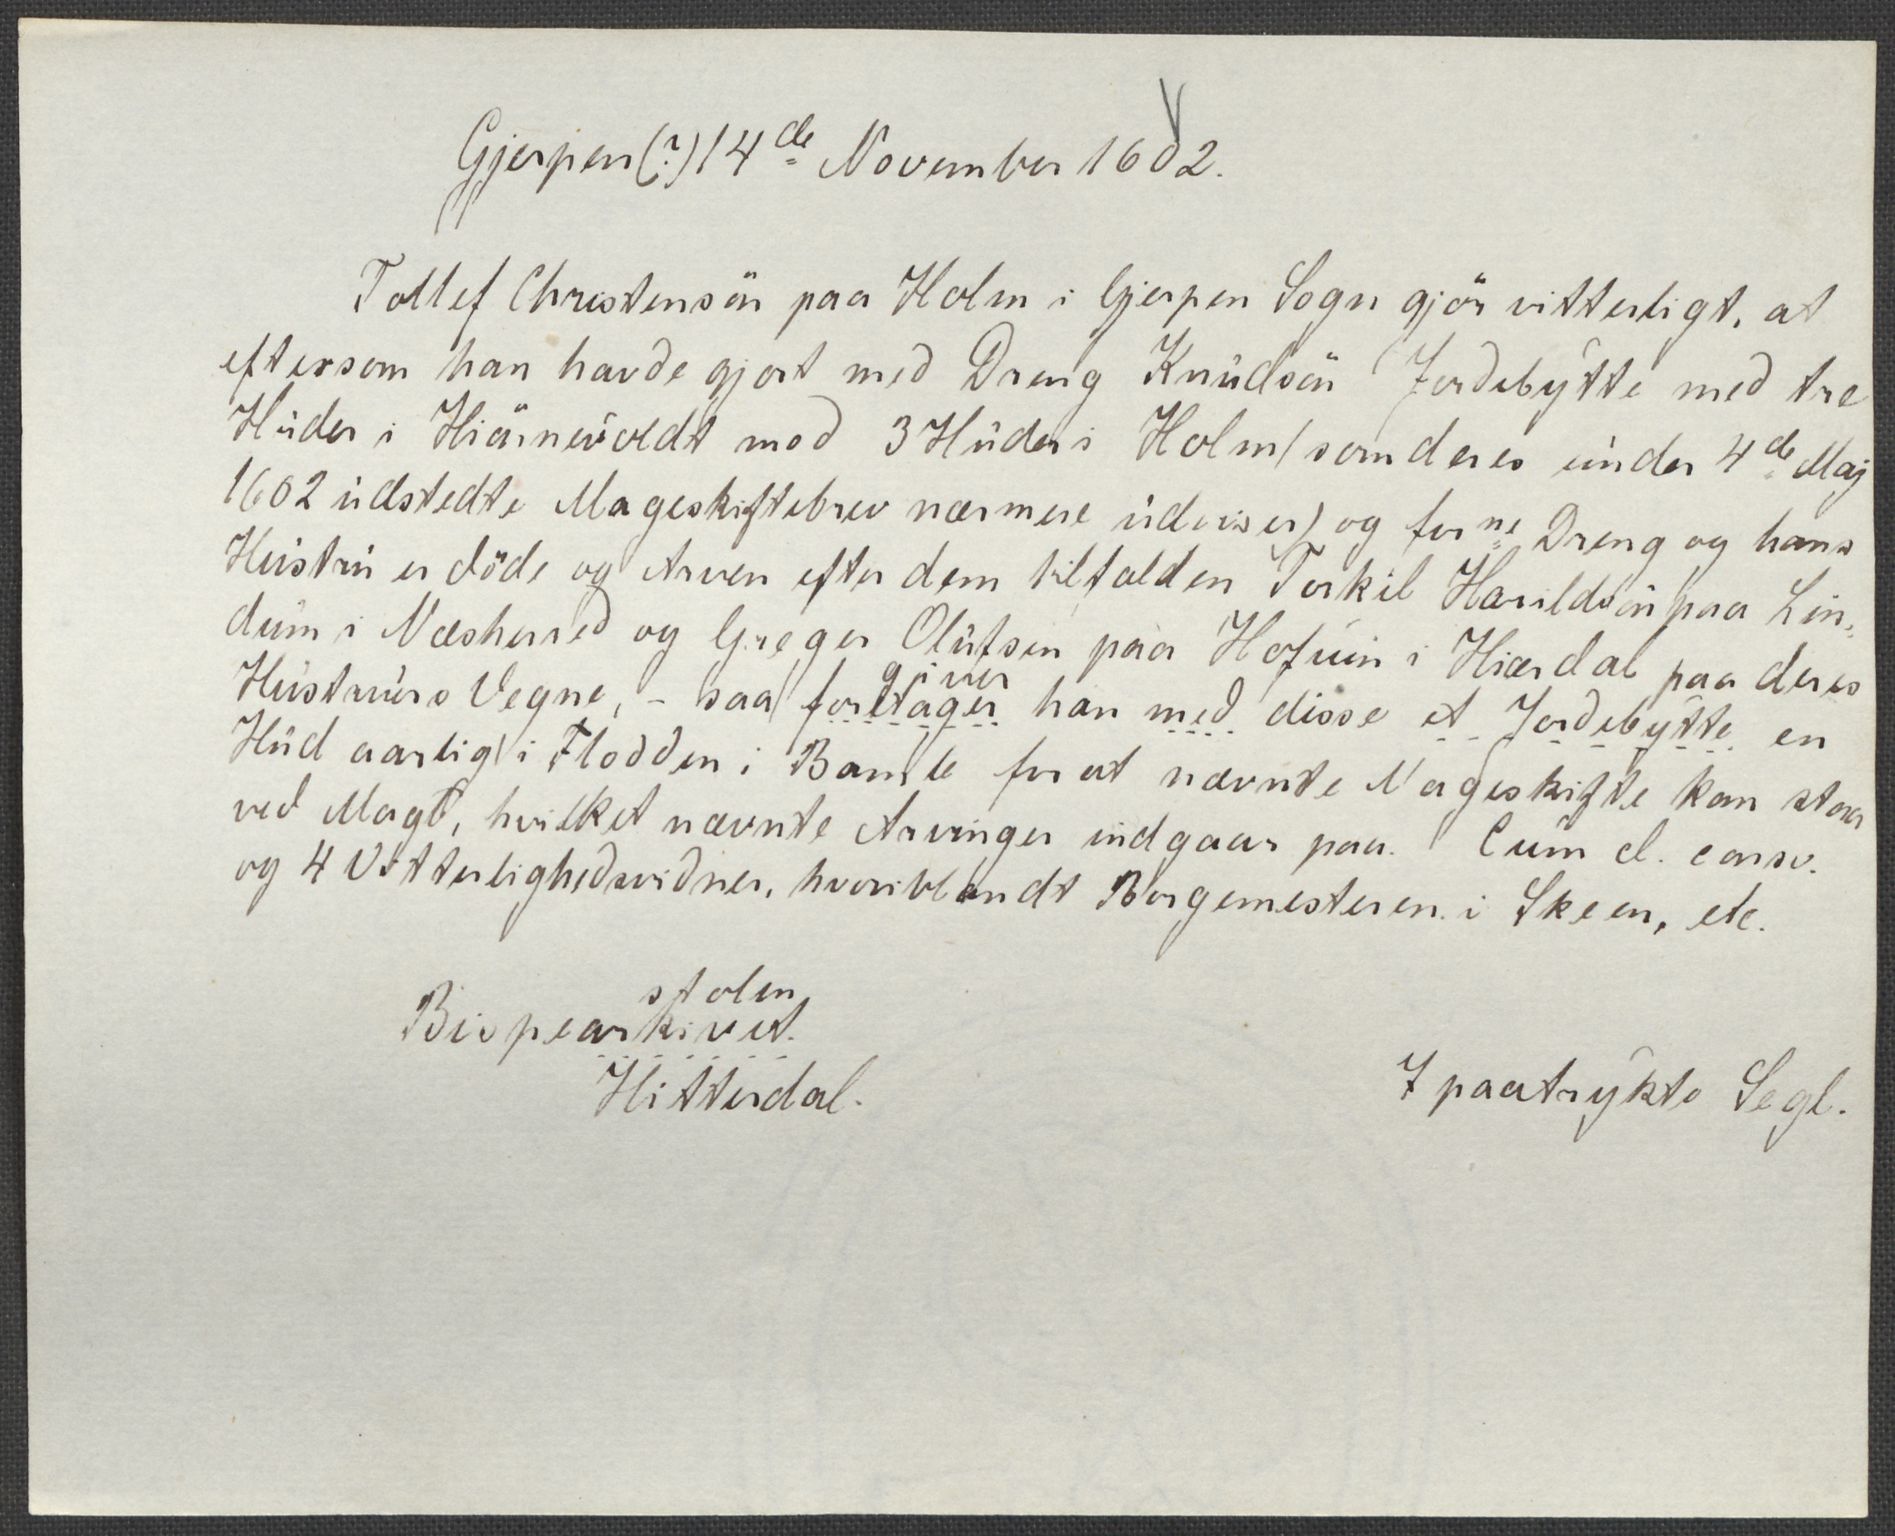 Gjerpen(?) 14de November 1602.
Tollef Christensön paa Holm i Gjerpen Sogn gjör vitterligt, at
eftersom han havde gjort med Dreng Knudsön Jordebytte med tre
Huder i Hiörnevoldt mod 3 Huder i Holm (som deres under 4de Maj
1602 udstedte Mageskiftebrev nærmere udviser) og forne Dreng og hans
Hustru er döde og Arven efter dem tilfalden Torkil Harildsön paa Lin-
dum i Næsherred og Greger Olufsen paa Hofuin i Hiærdal paa deres
giver
Hustruers Vegne, - saa foretager han med disse et Jordebytte en
Hud aarlig i Flodden i Bamle for at nævnte Mageskifte kan staa
ved Magt, hvilket nævnte Arvinger indgaar paa. Cum cl. consv.
og 4 Vitterlighedsvidner, hvoriblandt Borgemesteren i Skeen, etc.
stolen
Bispearkivet.
Hitterdal.
7 paatrykte Segl.